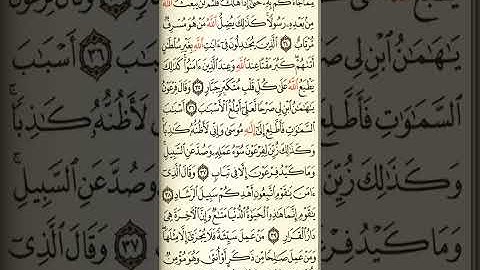 مِّمَّا جَآءَكُم بِهِۦ حَتَّىٰٓ إِذَا هَلَكَ قُلْتُمْ لَن يَبْعَثَ ٱللَّهُ
مِنۢ بَعْدِهِۦ رَسُولًا كَذَٰلِكَ يُضِلُّ ٱللَّهُ مَنْ هُوَ مُسْرِفٌ
مُّرْتَابٌ ٣٤ ٱلَّذِينَ يُجَٰدِلُونَ فِىٓ ءَايَٰتِ ٱللَّهِ بِغَيْرِ سُلْطَٰنٍ
أَتَىٰهُمْ كَبُرَ مَقْتًا عِندَ ٱللَّهِ وَعِندَ ٱلَّذِينَ ءَامَنُوا۟ كَذَٰلِكَ
يَطْبَعُ ٱللَّهُ عَلَىٰ كُلِّ قَلْبِ مُتَكَبِّرٍ جَبَّارٍ ٣٥ وَقَالَ فِرْعَوْنُ
يَٰهَٰمَٰنُ ٱبْنِ لِى صَرْحًا لَّعَلِّىٓ أَبْلُغُ ٱلْأَسْبَٰبَ ٣٦ أَسْبَٰبَ
ٱلسَّمَٰوَٰتِ فَأَطَّلِعَ إِلَىٰٓ إِلَٰهِ مُوسَىٰ وَإِنِّى لَأَظُنُّهُۥ كَٰذِبًا
وَكَذَٰلِكَ زُيِّنَ لِفِرْعَوْنَ سُوٓءُ عَمَلِهِۦ وَصُدَّ عَنِ ٱلسَّبِيلِ
وَمَا كَيْدُ فِرْعَوْنَ إِلَّا فِى تَبَابٍ ٣٧ وَقَالَ ٱلَّذِىٓ
ءَامَنَ يَٰقَوْمِ ٱتَّبِعُونِ أَهْدِكُمْ سَبِيلَ ٱلرَّشَادِ ٣٨
يَٰقَوْمِ إِنَّمَا هَٰذِهِ ٱلْحَيَوٰةُ ٱلدُّنْيَا مَتَٰعٌ وَإِنَّ ٱلْءَاخِرَةَ هِىَ
دَارُ ٱلْقَرَارِ ٣٩ مَنْ عَمِلَ سَيِّئَةً فَلَا يُجْزَىٰٓ إِلَّا مِثْلَهَا
وَمَنْ عَمِلَ صَٰلِحًا مِّن ذَكَرٍ أَوْ أُنثَىٰ وَهُوَ مُؤْمِنٌ